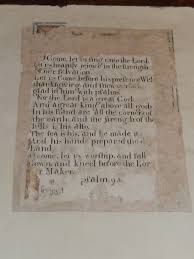 O Come, let us sing unto the Lord
let us heartily rejoice in the strength
of our Salvation.
Let us Come before his presence With
thanksgiving and shew ourselves
glad in him with psalms
For the Lord is a great God:
And a great king above all gods
In his hand are all the corners of
the earth, and the strength of the
hills is his also.
The sea is his, and he made it
And his hands prepared the
Land,
O come, let us worship, and fall
down and kneel before the Lord
Maker.
psalm.95.